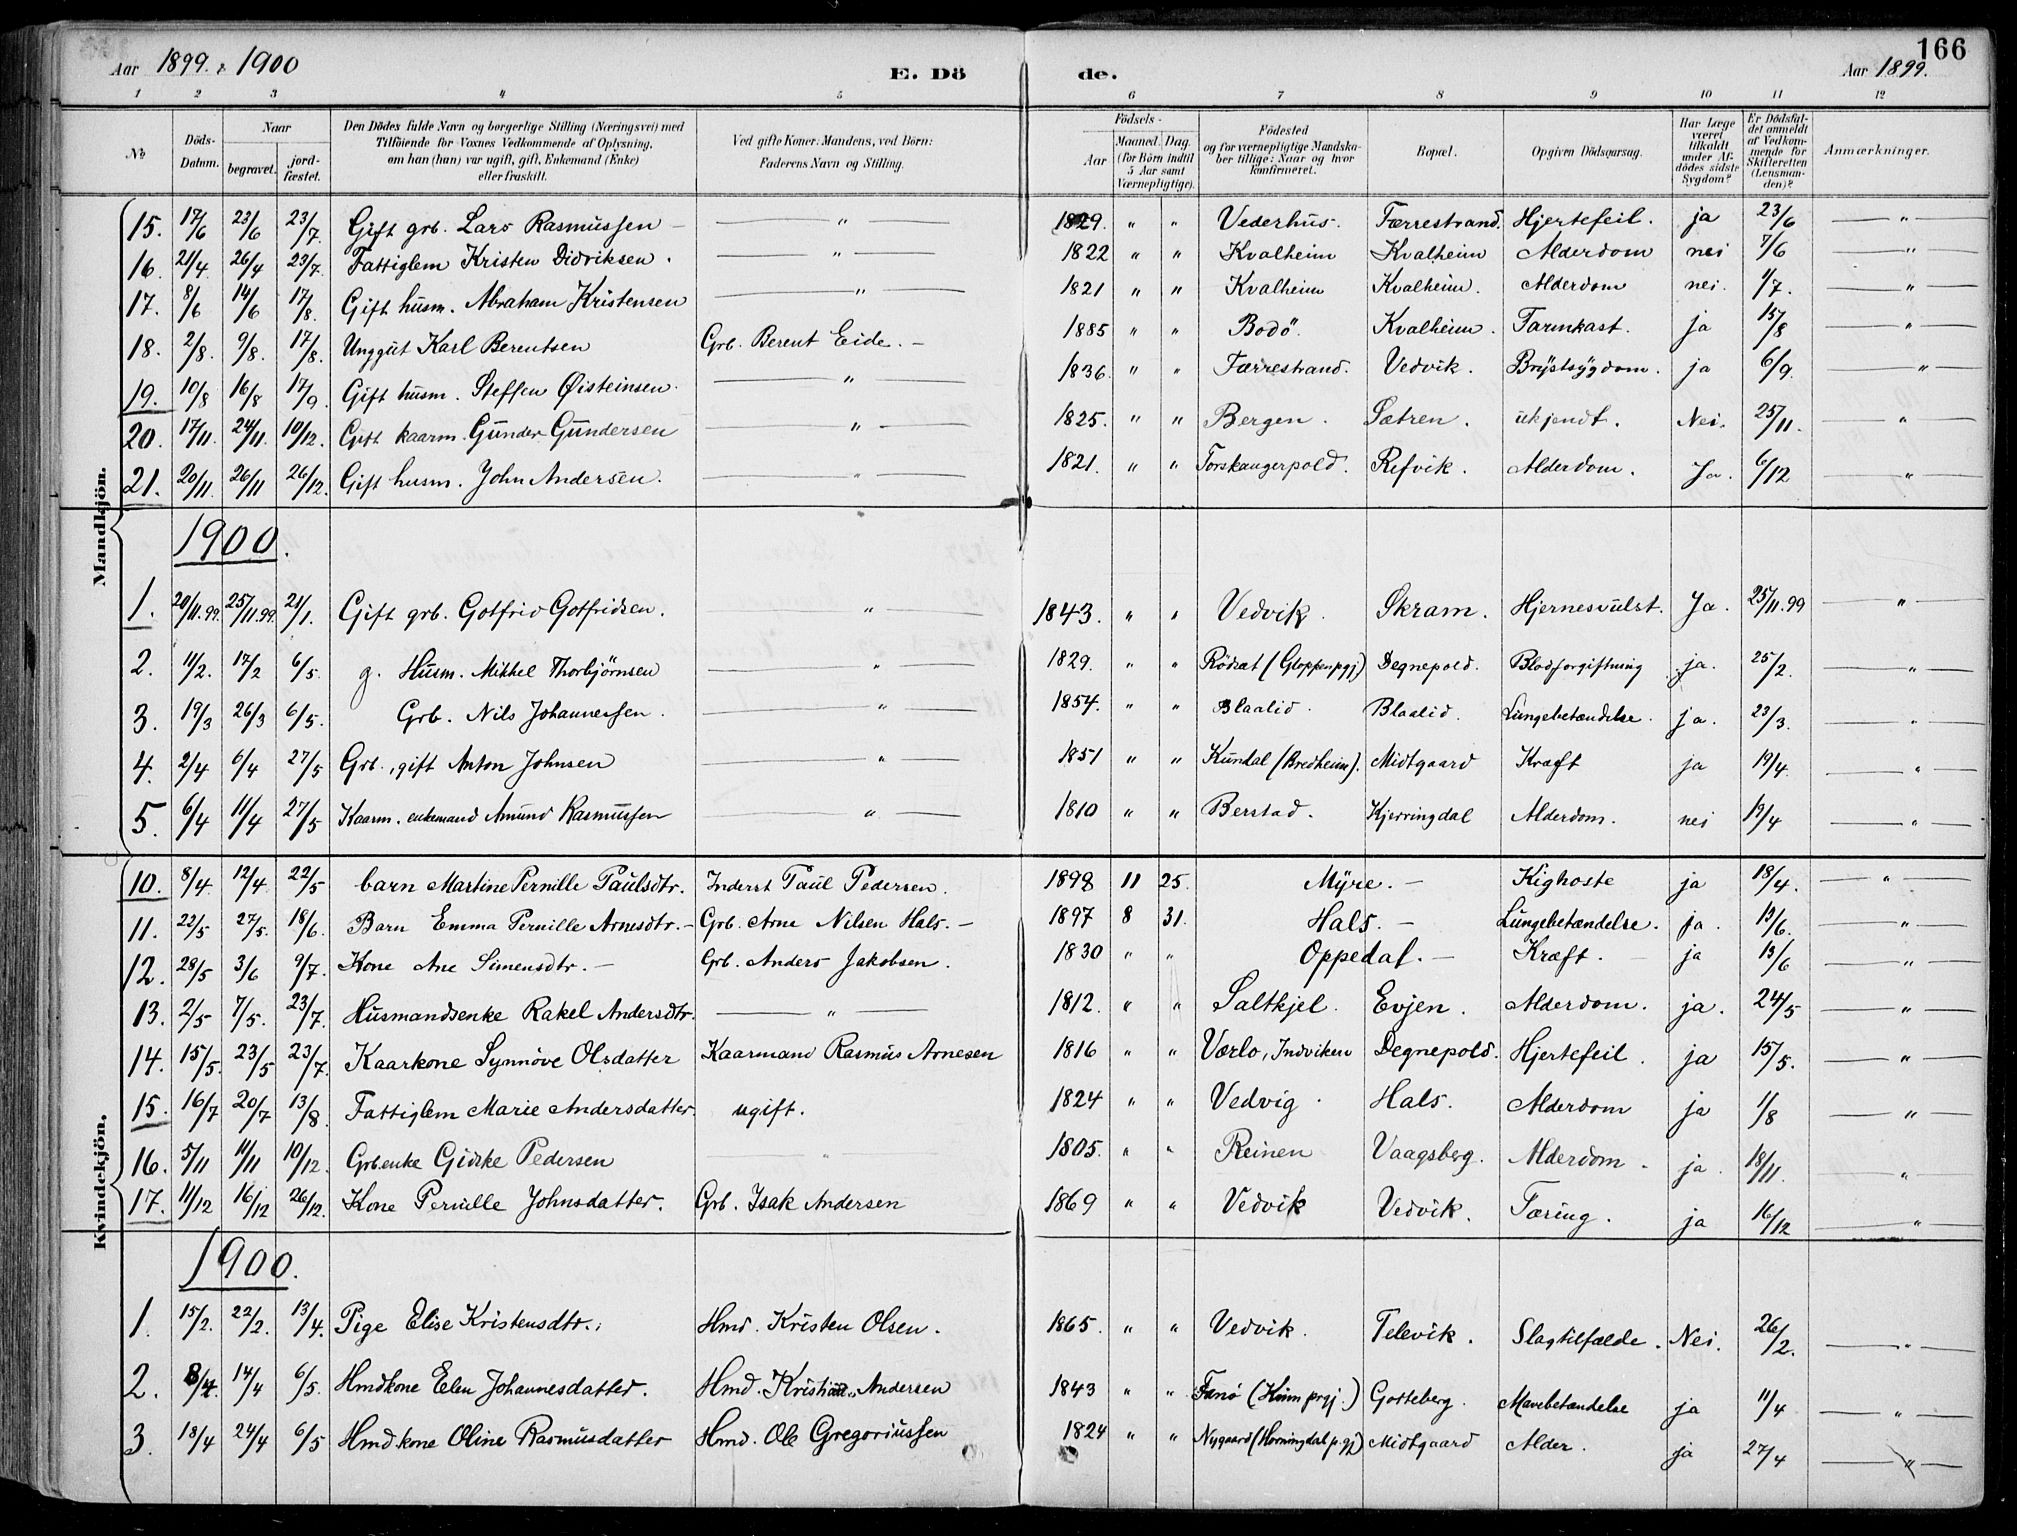 166
Aar 1899 & 1900 E. Dö de. Aar 1899.
1 2 3 4 5 6 7 8 9 10 11 12
No
Döds-Datum.
Naar
begravet.
jord-fæstet.
Den Dödes fulde Navn og borgerlige Stilling (Næringsvei) med
Tilföiende for Voxnes Vedkommende af Oplysning,
om han (hun) var ugift, gift, Enkemand (Enke)
eller fraskilt.
Ved gifte Koner: Mandens, ved Börn:
Faderens Navn og Stilling.
Födsels-
Aar
Maaned. Dag.
(for Börn indtil
5 Aar samt
Værnepligtige).
Födested
og for værnepligtige Mandska-
ber tillige: Naar og hvor
konfirmeret.
Bopæl.
Opgiven Dödsaarsag.
Har Læge
været
tilkaldt
under Af-
dödes sidste
Sygdom?
Er Dödsfal-
det anmeldt
af Vedkom-
mende for
Skifteretten
(Lensman-
den)?
Anmærkninger.
Mandkjön.
15. 17/6 23/6 23/7. Gift grb. Lars Rasmussen — " — 1829. " " Vederhus. Færrestrand. Hjertefeil. ja 23/6 — " —
16. 21/4 26/4 23/7. Fattiglem Kristen Didriksen. — " — 1822 " " Kvalheim Kvalheim Alderdom nei 7/6 — " —
17. 8/6 14/6 17/8. Gift husm. Abraham Kristensen — " — 1821 " " Kvalheim Kvalheim. Alderdom nei. 1/7. — " —
18. 2/8. 9/8. 17/8. Unggut Karl Berentsen Grb. Berent Eide. — 1885 " " Bodö. Kvalheim. Tarmkast. ja 15/8 — " —
19. 10/8 16/8 17/9. Gift husm. Steffen Øisteinsen. — " — 1836. " " Færrestrand. Vedvik. Brystsygdom. ja 6/9. — " —
20. 17/11. 24/11. 10/12. Gift kaarm. Gunder Gundersen — " — 1825. " " Bergen. Sætren. ukjendt. Nei. 25/11. — " —
21. 20/11. 26/11 26/12. Gift husm. John Andersen. — " — 1821. " " Torskangerpold. Refvik. Alderdom. Ja. 6/12 — " —
1900.
1. 20/11.99. 25/11.99. 21/1. Gift grb. Gotfrid Gotfridsen. — " — 1843. " " Vedvik. Skram. Hjernesvulst. Ja. 25/11.99 — " —
2. 11/2. 17/2 6/5. g. Husm. Mikkel Thorbjørnsen — " — 1829. " " Rödset (Gloppen pgj) Degnepold. Blodforgiftning ja. 25/2. — " —
3. 19/3 26/3 6/5. Grb. Nils Johannessen. — " — 1854. " " Blaalid. Blaalid. Lungebetændelse. ja. 23/3. — " —
4. 2/4 6/4 27/5 Grb., gift Anton Johnsen — " — 1851 " " Kundal (Bredheim). Midtgaard Kræft ja 19/4. — " —
5. 6/4 11/4 27/5 Kaarm. enkemand Amund Rasmussen — " — 1810 " " Berstad. Kjerringdal Alderdom. nei 19/4 — " —
Kvindekjön.
10. 8/4. 12/4. 22/5 barn Martine Pernille Paulsdtr. Inderst Paul Pedersen. 1898 11 25. Myre. — Kighoste ja 18/4. — " —
11. 22/5 27/5. 18/6. Barn Emma Pernille Arnesdtr. — Grb. Arne Nilsen Hals. — 1897 8 31. Hals. — Lungebetændelse. ja. 13/6. — " —
12. 28/5 3/6 9/7. Kone Ane Simensdtr. — Grb. Anders Jakobsen. 1830 " " Oppedal. — Kræft. — ja 13/6 — " —
13. 2/5 7/5. 23/7. Husmandsenke Rakel Andersdtr. — " — 1812. " " Saltkjel. Evjen. Alderdom. ja. 24/5 — " —
14. 15/5. 23/5 23/7. Kaarkone Synnöve Olsdatter Kaarmand Rasmus Arnesen 1816 " " Værlo, Indviken Degnepold. Hjertefeil. ja 15/5. — " —
15. 16/7 20/7 13/8 Fattiglem Marie Andersdatter ugift. 1824 " " Vedvig. Hals. Alderdom ja 1/8 — " —
16. 5/11 11/11 10/12. Grb.enke Gidske Pedersen — " — 1805. " " Reinen Vaagsberg. Alderdom. ja. 18/11. — " —
17. 11/12 16/12 26/12. Kone Pernille Johnsdatter. Grb. Isak Andersen 1869 " " Vedvik Vedvik. Tæring. ja 16/12 — " —
1900.
1. 15/2. 22/2. 13/4. Pige Elise Kristensdtr. Hmd. Kristen Olsen. 1865. " " Vedvik. Televik. Slagtilfælde. Nei. 26/2. — " —
2. 8/4. 14/4 6/5. Hmdkone Elen Johannesdatter. Hmd. Kristian Andersen 1843 " " Fanö (Kinn prgj.) Gotteberg. Mavebetændelse ja 11/4 — " —
3. 18/4 24/4 6/5 Hmdkone Oline Rasmusdatter Hmd. Ole Gregoriussen 1824 " " Nygaard (Horningdal p.gj) Midtgaard Alder. ja 27/4 — " —